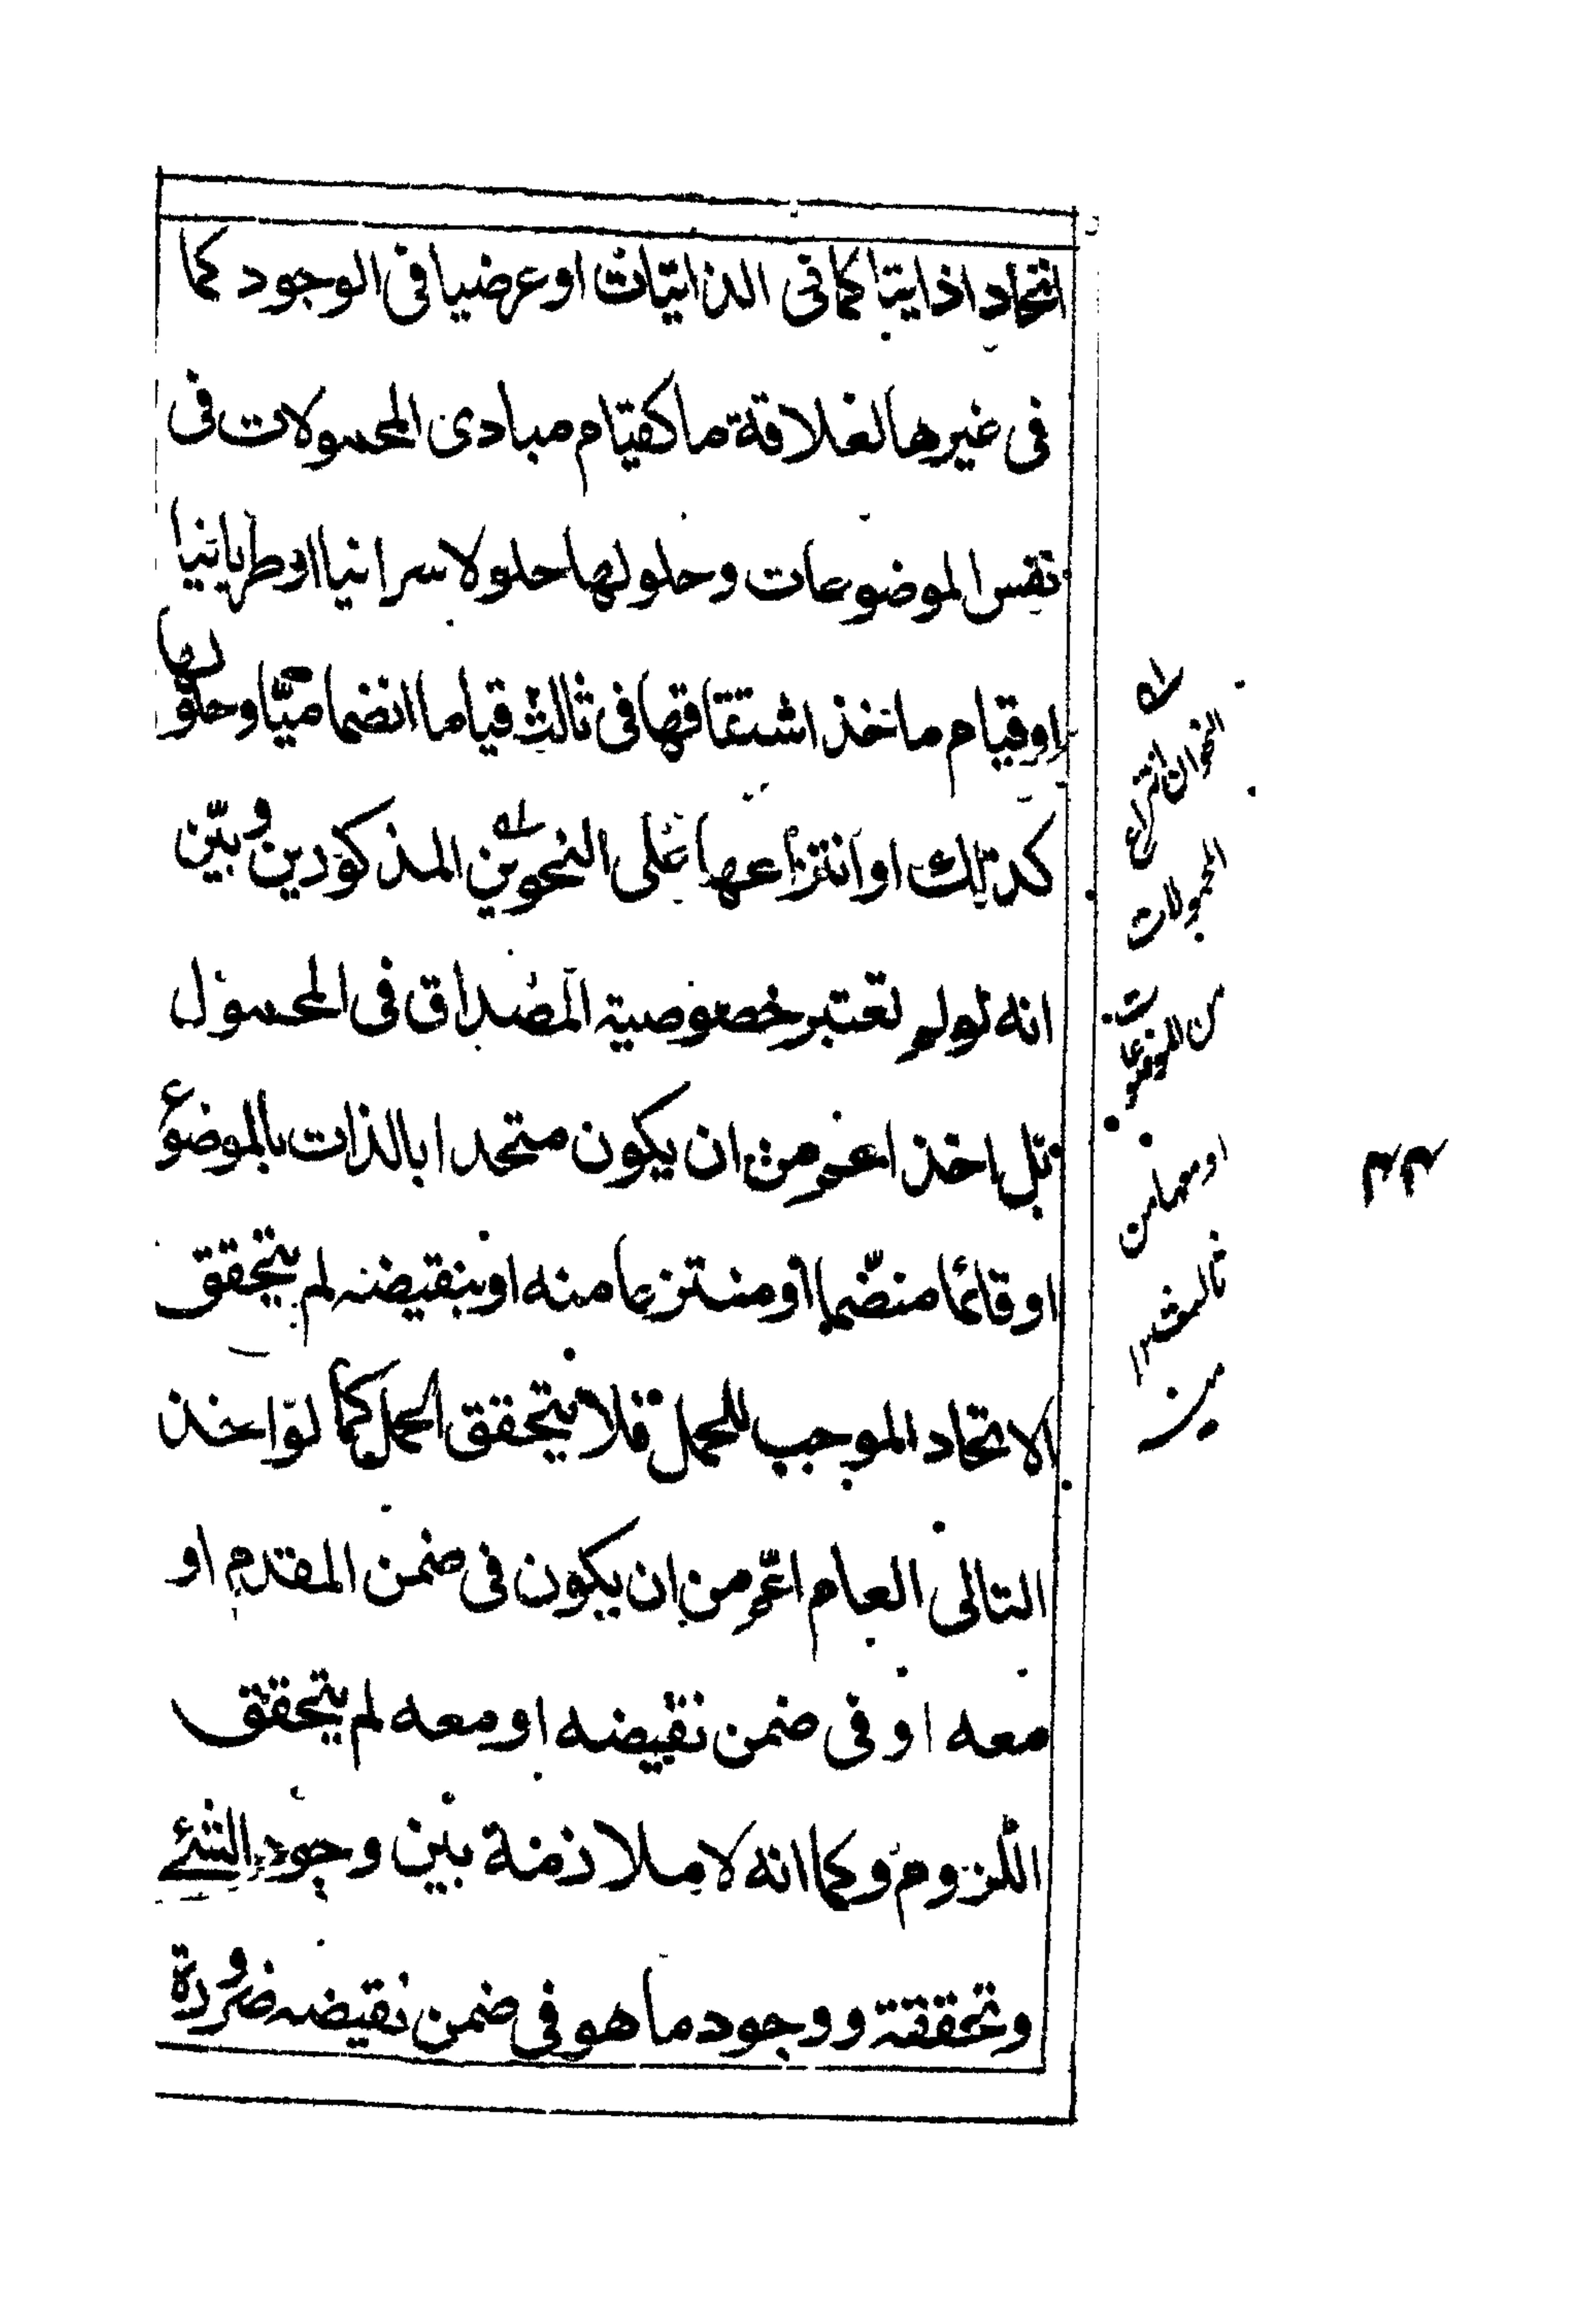 اتحادا ذاتيا كما فى الذاتيات او عرضيا فى الوجود كما
فى غيرها لعلاقة ما كقيام مبادى المحمولات فى
نفس الموضوعات وحلولها حلولا سريانيا او طريانيا
او قيام ماخذ اشتقاقها فى ثالث قياما انضماميّا وحلولها
كذلك او انتزاعها على النحوين المذكورين وبيّن
انه لو لم تعتبر خصوصية المصداق فى المحمول
بل اخذ اعم من ان يكون متحدا بالذات بالموضوع
او قائما منضّما او منتزعا منه او بنقيضه لم يتحقق
الاتحاد الموجب للحمل فلا يتحقق الحمل كما لو اخذ
التالى العام اعمّ من ان يكون فى ضمن المقدم او
معه او فى ضمن نقيضه او معه لم يتحقق
اللزوم وكما انه لا ملازمة بين وجود الشئے
وتحققة ووجود ما هو فى ضمن نقيضه ضرورة
النحوان انتزاع
المحمولات
من الموضوعات
او مهامن
ثالث